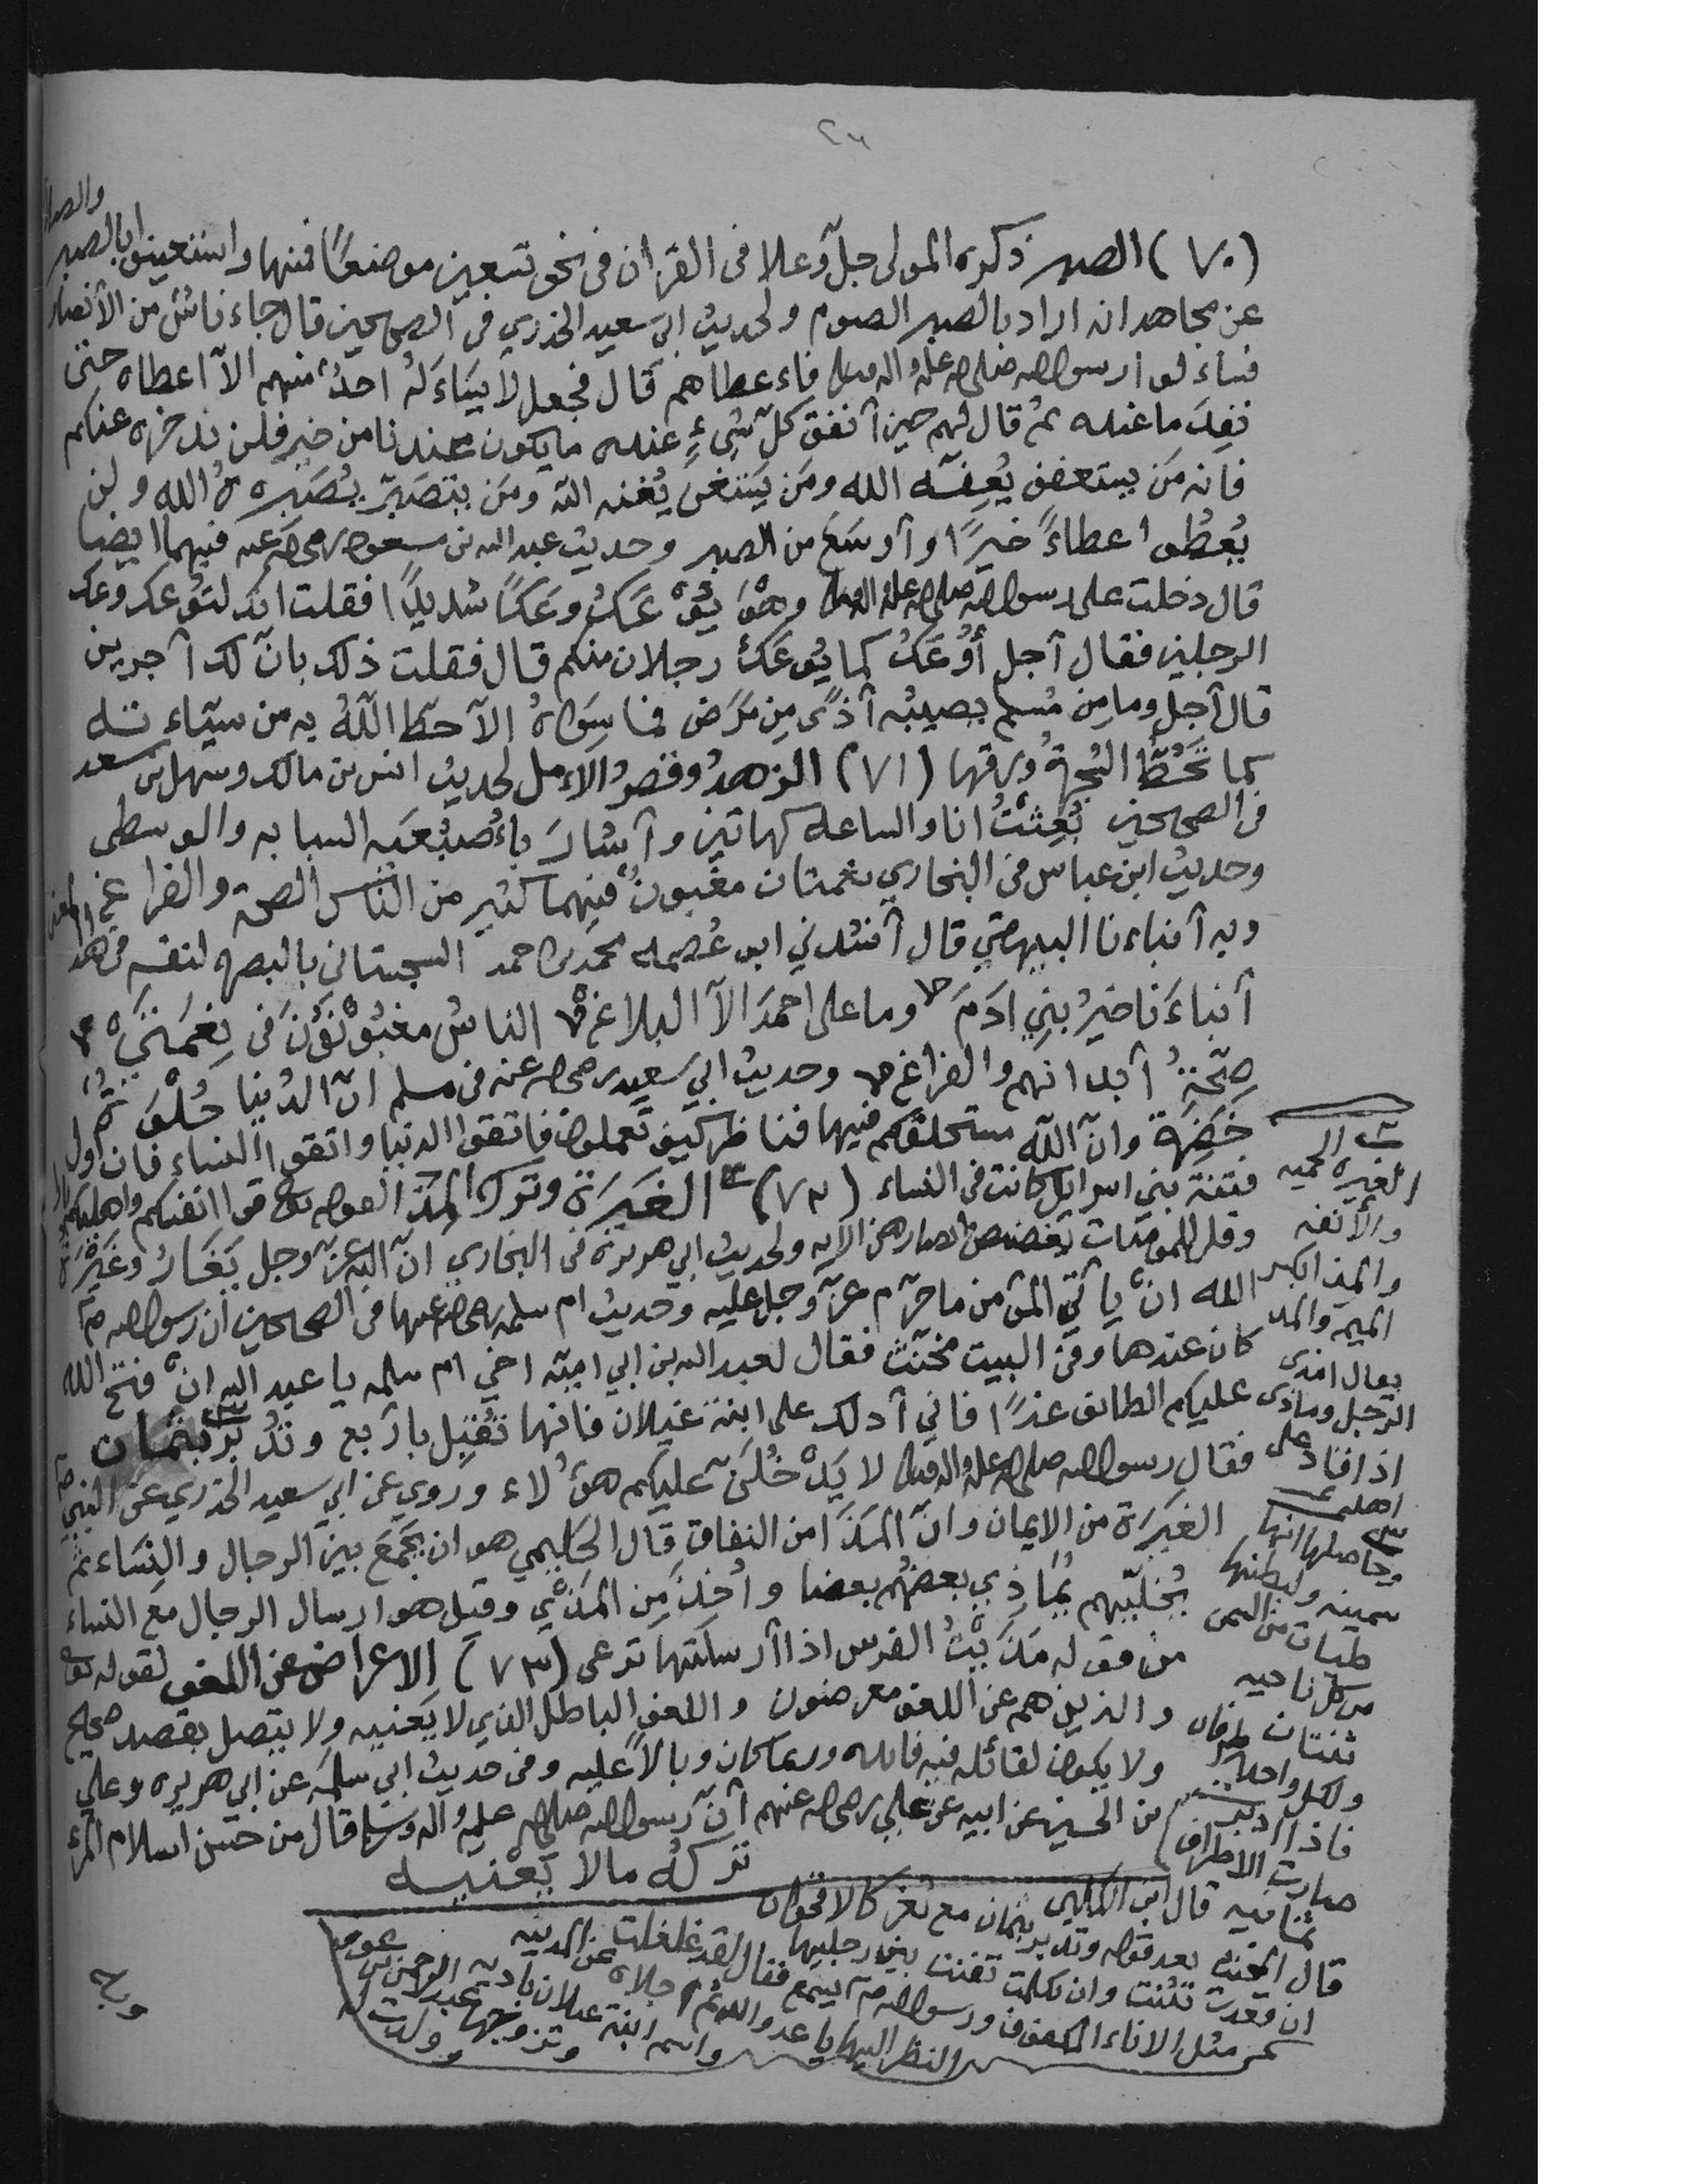 ٢٦
(٧٠) الصبر ذكره المولى جلّ وعلا فى القرءان فى نحو تسعين موضعًا فمنها واستعينوا بالصبر والصلاة
عن مجاهد انه اراد بالصبر الصوم ولحديث ابي سعيد الخذري فى الصحيحين قال جاء ناسٌ من الأنصار
فساءلوا رسول الله صلى الله عليه واله وسلم فاءعطاهم قال فجعل لا يساءَلهُ احدٌ منهم الآ اعطاه حتى
نفِدَ ما عنده ثم قال لهم حين آنفق كلّ شىءٍ عنده ما يكون عندنا من خيرٍ فلن ندخره عنكم
فانه مَن يستعفف يُعِفّه الله ومَن يَستغنِ يُغنه الله ومَن يتصَبّر يُصَبِّرهُ الله ولن
يُعطَوا عطاءً خيرًا وآوسَعَ من الصبر وحديث عبد الله بن مسعود رضى الله عنه فيهما ايضا
قال دخلت على رسول الله صلى الله عليه واله وسلم وهْوَ يُوْعَكُ وعَكًا شديدًا فقلت انك لتوعك وعك
الرجلين فقال آجل أُوْعَكُ كما يُوعَكُ رجلان منكم قال فقلت ذلك بانّ لك آجرين
قال آجل وما مِن مُسلم يصيبُه آذًى مِن مَرَض فما سِوَاهُ الآ حطّ اللّهُ به من سيّاءته
كما تَحُطُّ الشجرةُ ورقها (٧١) الزهدُ وقصرُ الاءمل لحديث انس بن مالك وسهل بن سعد
فى الصحيحين بُعِثْتُ انا والساعه كهاتين وآشارَ باءُصبُعَيه السبابه والوسطى
وحديث ابن عباس فى البخاري نعمتان مغبونٌ فيهما كثير من الناس الصحة والفراغ
وبه آنباءنا البيهقي قال آنشدني ابو عُصمه محمد بن احمد السجستاني بالبصره لنفسه فى هذا المعنى
آنباءَنا خيرُ بنِي ادَمَ وما على احمدَ الآ البلاغ الناسُ مغبُوْنُوْنَ فى نِعْمَتَيْ
صِحّةُ آبدانهم والفراغ وحديث ابي سعيد رضى الله عنه فى مسلم انّ الدُنيا حُلْوَةٌ
خَضِرَة وانّ اللّه مستخلفكم فيها فناظر كيف تعملون فاتقوا الدنيا واتقوا النساء فان اول
فتنة بني اسرايل كانت فى النساء (٧٢) الغَيرَة وترك المَذَا لقوله تعا قوا انفسكم واهليكم نارا
وقل للمومنات يغضضن من ابصارهن الايه ولحديث ابي هريرة فى البخاري انّ الله عزّ وجل يَغَارُ وغَيْرَةُ
الله انْ ياتي المؤمن ما حرّم عزّ وجل عليه وحديث ام سلمه رضى الله عنها فى الصحيحين ان رسول الله ص
كان عندها وفى البيت مخنّث فقال لعبد الله بن ابي اميّه اخي ام سلمه يا عبد الله انْ فتح الله
عليكم الطائف غدًا فاني آدلك على ابنة غيلان فانها تُقبِل بآربع وتُدْبِرُ بثمان
فقال رسول الله صلى الله عليه واله وسلم لا يَدْخُلَنّ عليكم هؤُلاء وروي عن ابي سعيد الخذري عن النبي ص
الغَيرَة من الايمان وانّ المَذَا من النفاق قال الحليمي هو ان يَجمَعَ بين الرجال والنساء ثم
يُخليّهم يُماذِي بعضُهُم بعضا وأُخِذَ مِن المَذْي وقيل هو ارسال الرجال مع النساء
من قوله مَذَيْتُ الفرس اذا آرسلتها ترعى (٧٣) الاعراض عن اللغو لقوله تعا
والذين هم عن اللغو معرضون واللغو الباطل الذي لا يَعنيه ولا يتصل بقصد صحيح
ولا يكون لقائله فيه فائده وربما كان وبالاً عليه وفى حديث ابي سلمَة عن ابي هريره وعلي
بن الحسين عن ابيه عن علي رضى الله عنهم آنّ رسول الله صلى الله عليه واله وسلم قال من حسن اسلام المرء
تركُهُ مالا يَعْنيه
الغيره الحميه
والأنفه
والمذا بكسر
الميم والمد
يقال امذى
الرجل وماذى
اذا قاد على
اهله
وحاصلها انها
سمينه ولبطنها
طيات من السمن
من كل ناحيه
ثنتان
ولكل واحد طرفان
فاذا ادبرت
صارت الاطراف
ثمانيه قال ابن الكلبي
قال المخنث بعد قوله وتدبر بثمان مع ثغر كالاقحوان
ان قعدت تثنت وان تكلمت تغنت بين رجليها
مثل الاناء المكفوف ورسول الله ص يسمع فقال لقد غلغلت
النظر اليها يا عدو الله ثم اجلاه عن المدينه
واسم ابنة غيلان باديه
وتزوجها عبد الرحمن بن عوف
وولدت